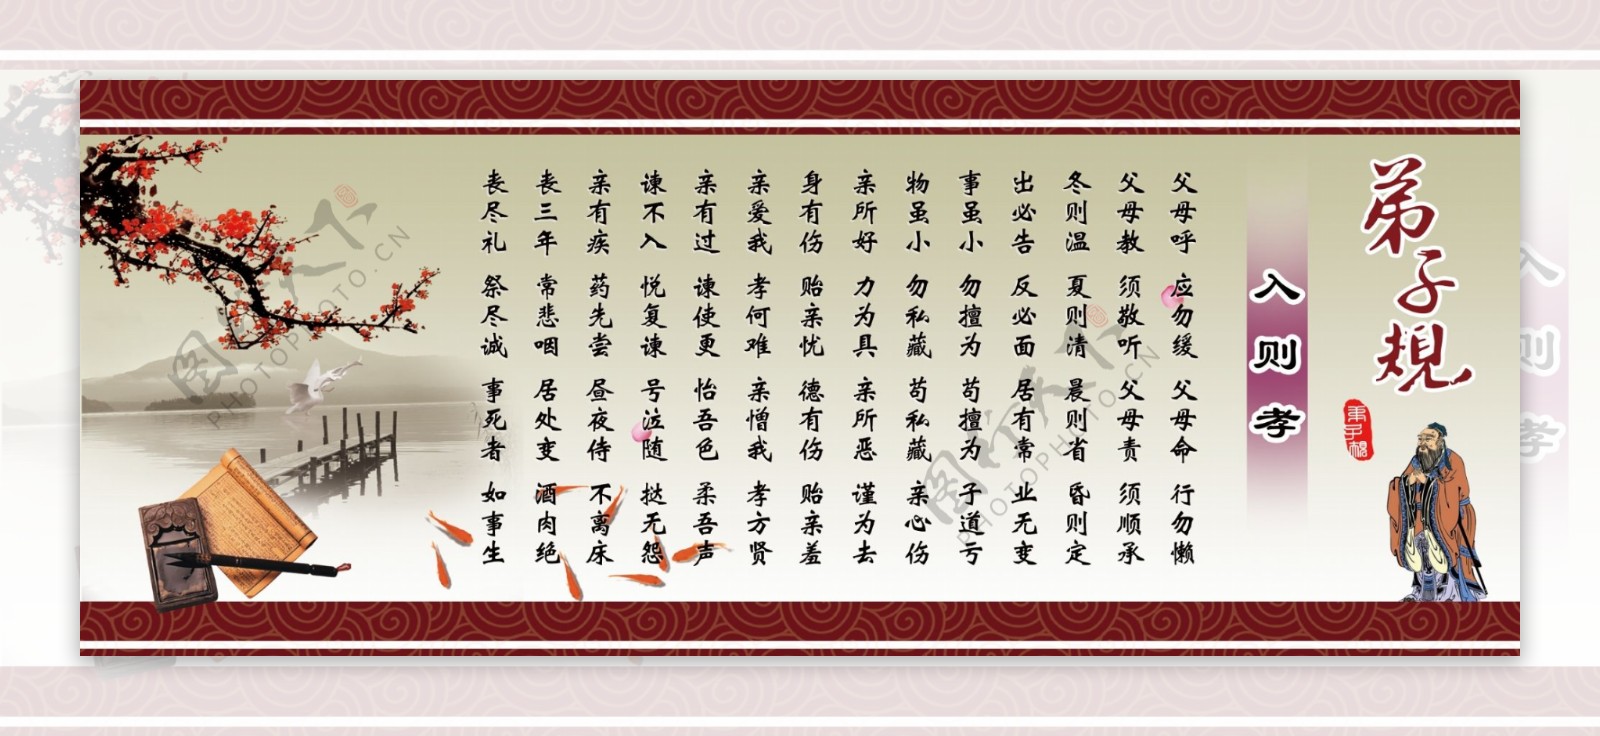 弟子规
入则孝
父母呼 应勿缓 父母命 行勿懒
父母教 须敬听 父母责 须顺承
冬则温 夏则清 晨则省 昏则定
出必告 反必面 居有常 业无变
事虽小 勿擅为 苟擅为 子道亏
物虽小 勿私藏 苟私藏 亲心伤
亲所好 力为具 亲所恶 谨为去
身有伤 贻亲忧 德有伤 贻亲羞
亲爱我 孝何难 亲憎我 孝方贤
亲有过 谏使更 怡吾色 柔吾声
谏不入 悦复谏 号泣随 挞无怨
亲有疾 药先尝 昼夜侍 不离床
丧三年 常悲咽 居处变 酒肉绝
丧尽礼 祭尽诚 事死者 如事生
图行天下
PHOTOPHOTO.CN
图行天下
PHOTOPHOTO.CN